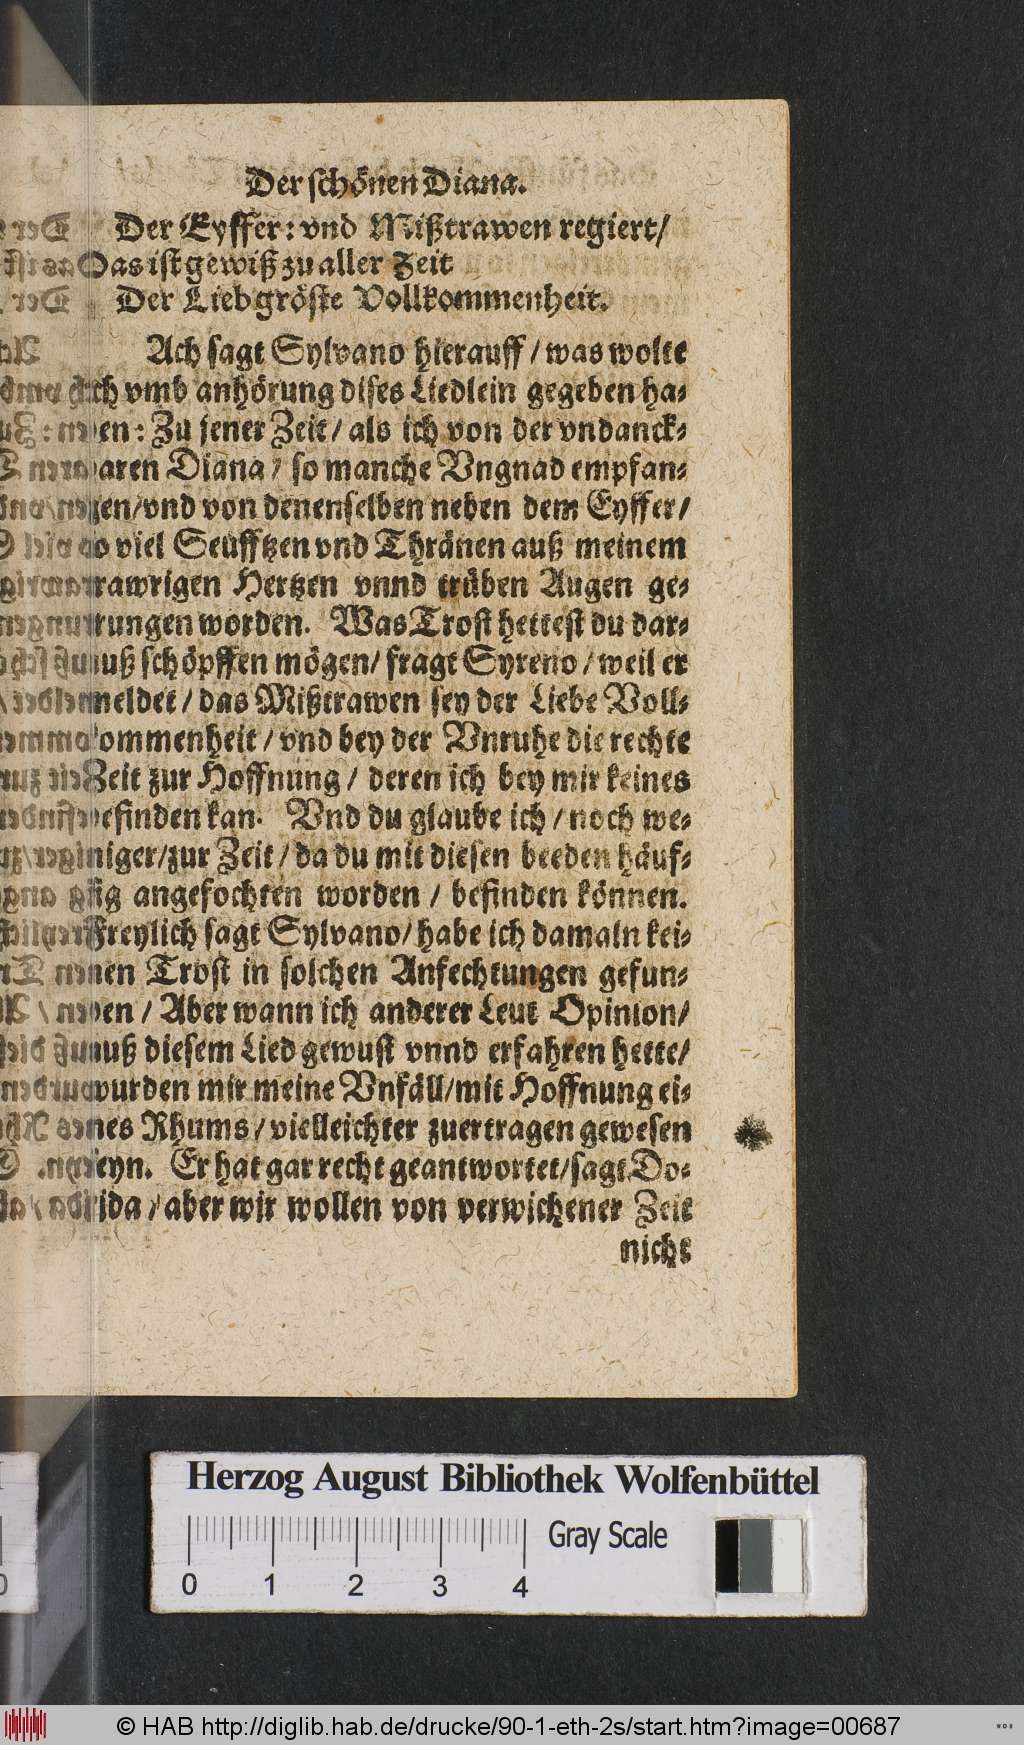 Der schönen Diana.
Der Eyffer: vnd Mißtrawen regiert/
Das ist gewiß zu aller Zeit
Der Lieb gröste Vollkommenheit.
Ach sagt Sylvano hierauff / was wolte
ich vmb anhörung dises Liedlein gegeben ha-
ben: Zu jener Zeit / als ich von der vndanck-
baren Diana / so manche Vngnad empfan-
gen/vnd von denenselben neben dem Eyffer/
so viel Seufftzen vnd Thränen auß meinem
trawrigen Hertzen vnnd trüben Augen ge-
trungen worden. Was Trost hettest du dar-
auß schöpffen mögen/ fragt Syreno / weil er
meldet / das Mißtrawen sey der Liebe Voll-
kommenheit / vnd bey der Vnruhe die rechte
Zeit zur Hoffnung / deren ich bey mir keines
befinden kan. Vnd du glaube ich / noch we-
niger/zur Zeit / da du mit diesen beeden häuf-
fig angefochten worden / befinden können.
Freylich sagt Sylvano/ habe ich damaln kei-
nen Trost in solchen Anfechtungen gefun-
den / Aber wann ich anderer Leut Opinion/
auß diesem Lied gewust vnnd erfahren hette/
wurden mir meine Vnfäll/mit Hoffnung ei-
nes Rhums / vielleichter zuertragen gewesen
seyn. Er hat gar recht geantwortet/sagt Do-
rida / aber wir wollen von verwichener Zeit
nicht
Herzog August Bibliothek Wolfenbüttel
Gray Scale
0 1 2 3 4
© HAB http://diglib.hab.de/drucke/90-1-eth-2s/start.htm?image=00687